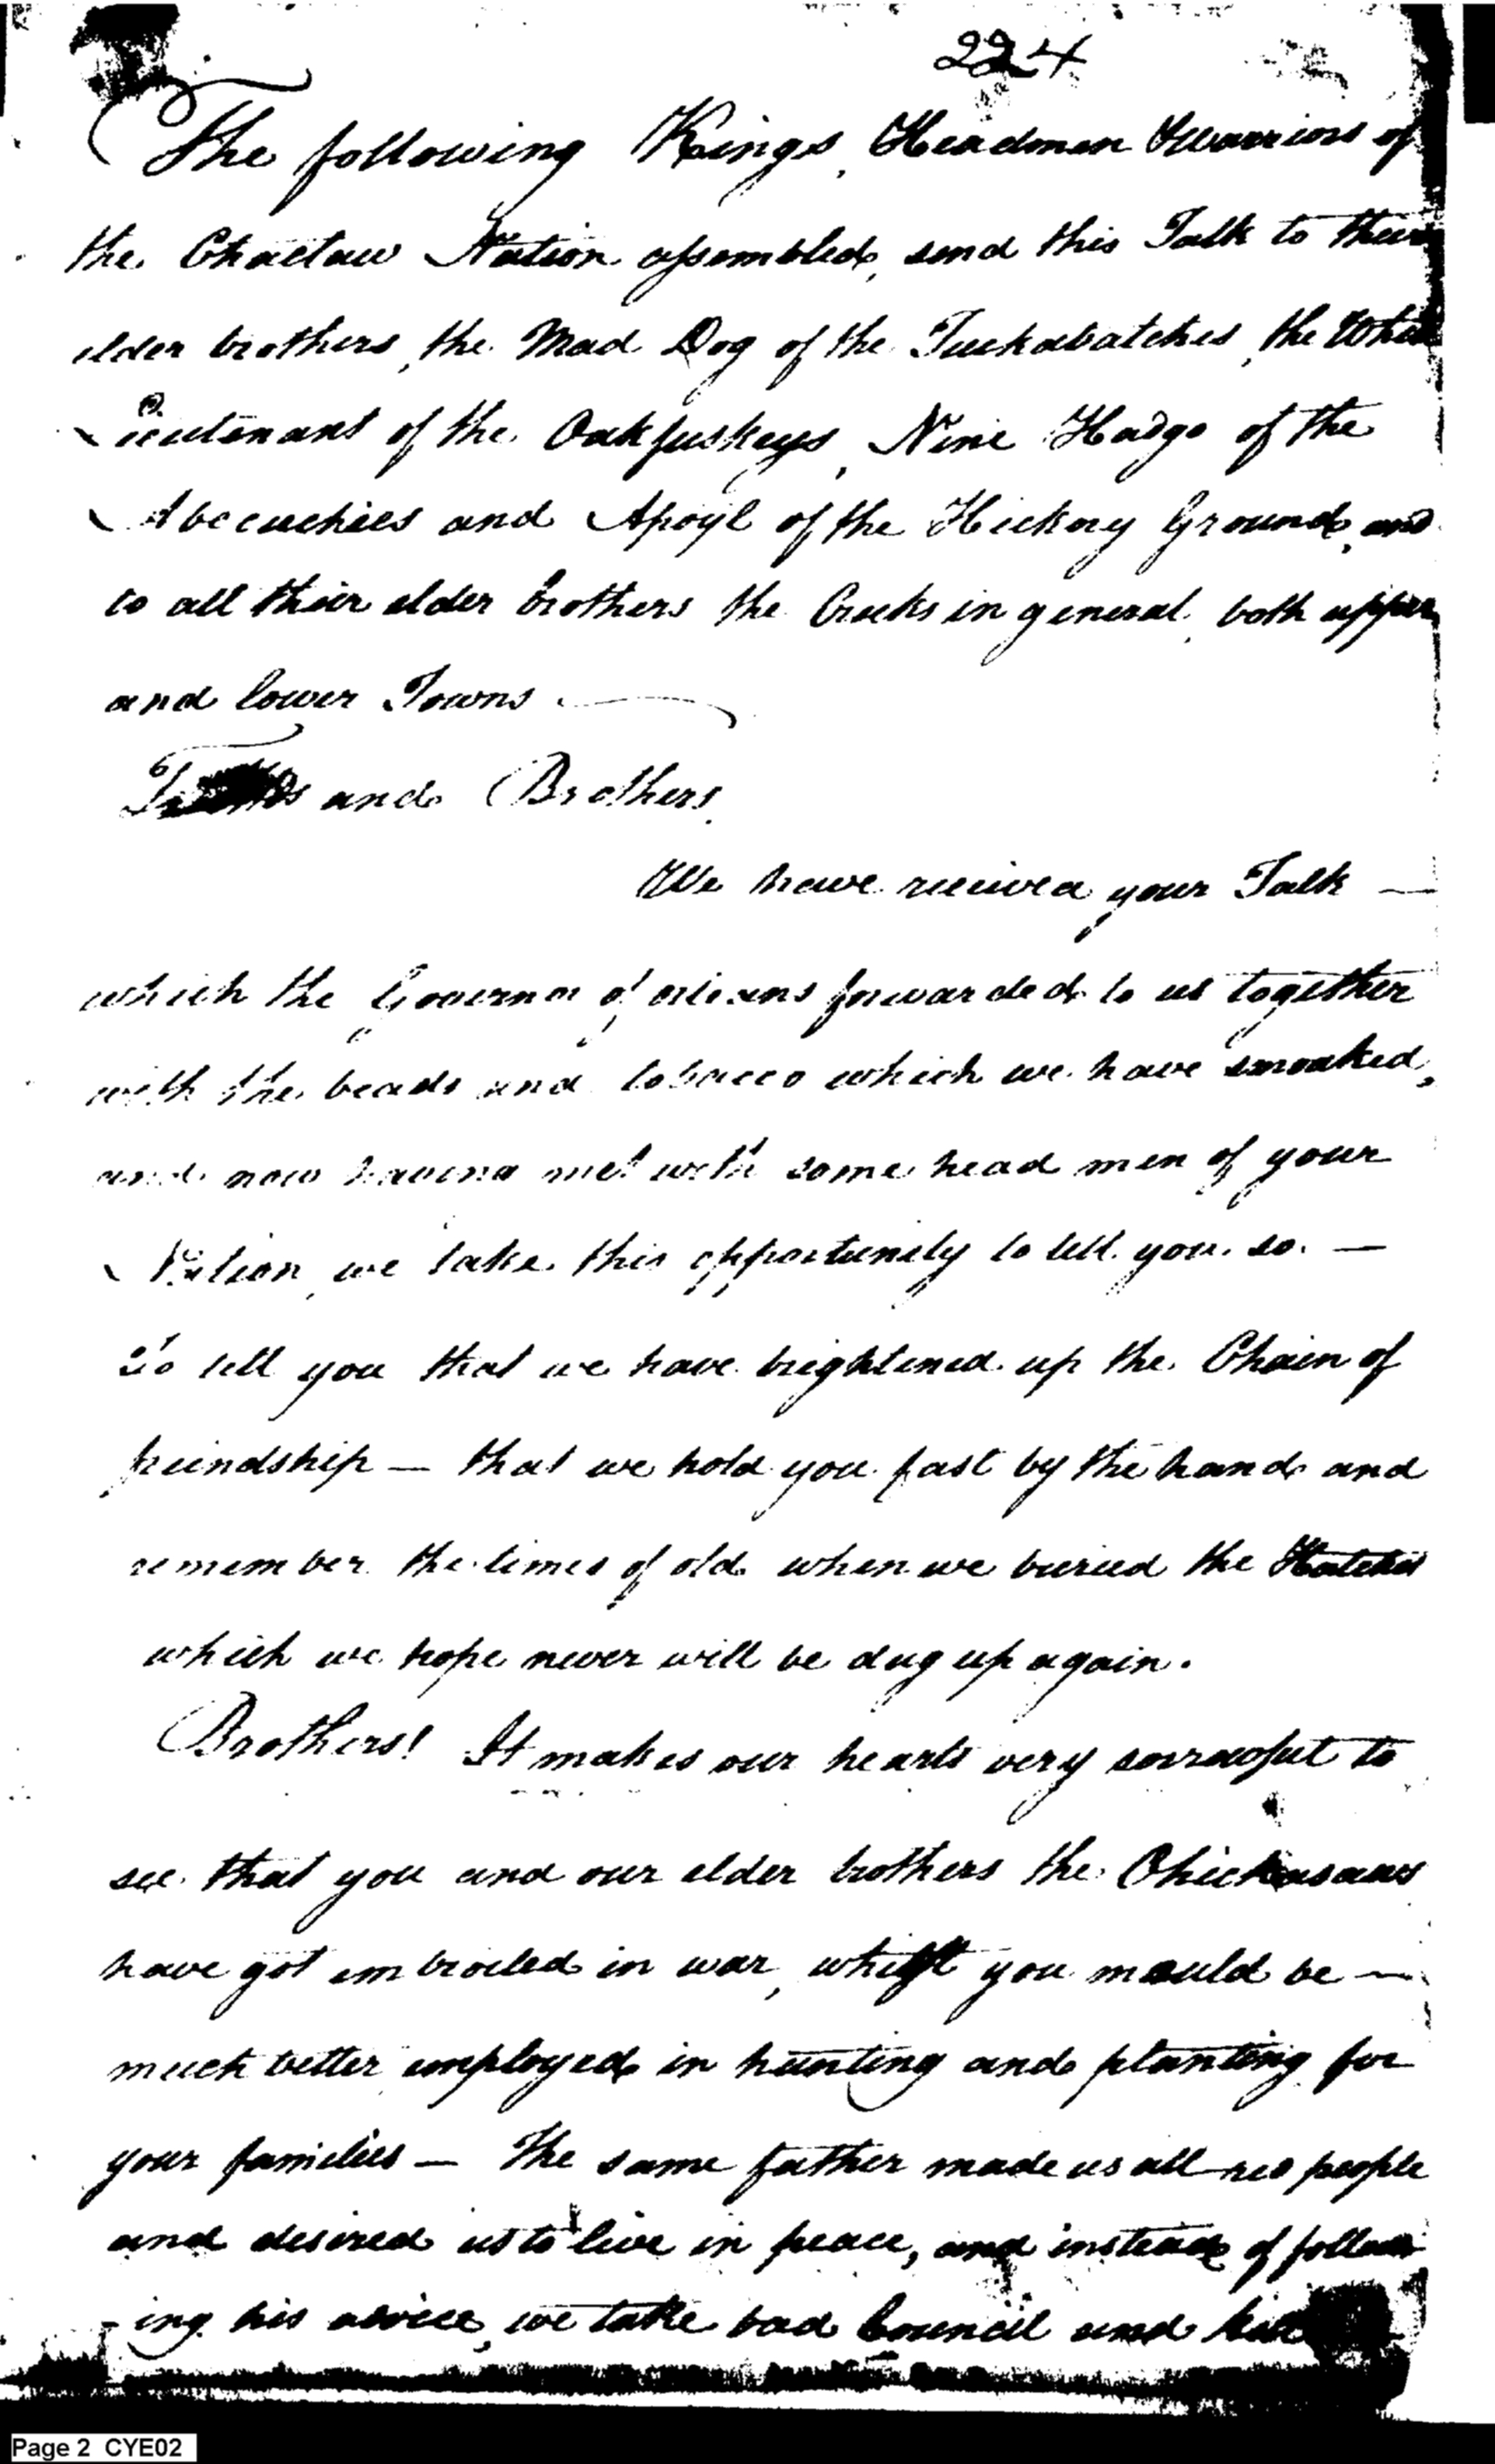 224
The following Kings, Headmen & Warriors of
the Chactaw Nation assembled, send this Talk to their
elder brothers, the Mad Dog of the Tuckabatches, the White
Lieutenant of the Oakfuskeys, Nine Hadgo of the
Abecuchies and Apoyl of the Hickory Ground, and
to all their elder brothers the Creeks in general, both upper
and lower Towns
Friends and Brothers,
We have received your Talk —
which the Governor of Orleans forwarded to us together
with the beads and tobacco which we have smoaked,
and now having met with some head men of your
Nation, we take this opportunity to tell you so. —
To tell you that we have brightened up the Chain of
friendship — that we hold you fast by the hand and
remember the times of old when we buried the Hatchet
which we hope never will be dug up again.
Brothers! It makes our hearts very sorrowful to
see that you and our elder brothers the Chickasaws
have got embroiled in war, whilst you mould be —
much better employed in hunting and planting for
your families — The same father made us all red people
and desired us to live in peace, and instead of follow
-ing his advice, we take bad Council and
Page 2 CYE02